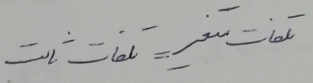 تلفات متغیر = تلفات ثابت